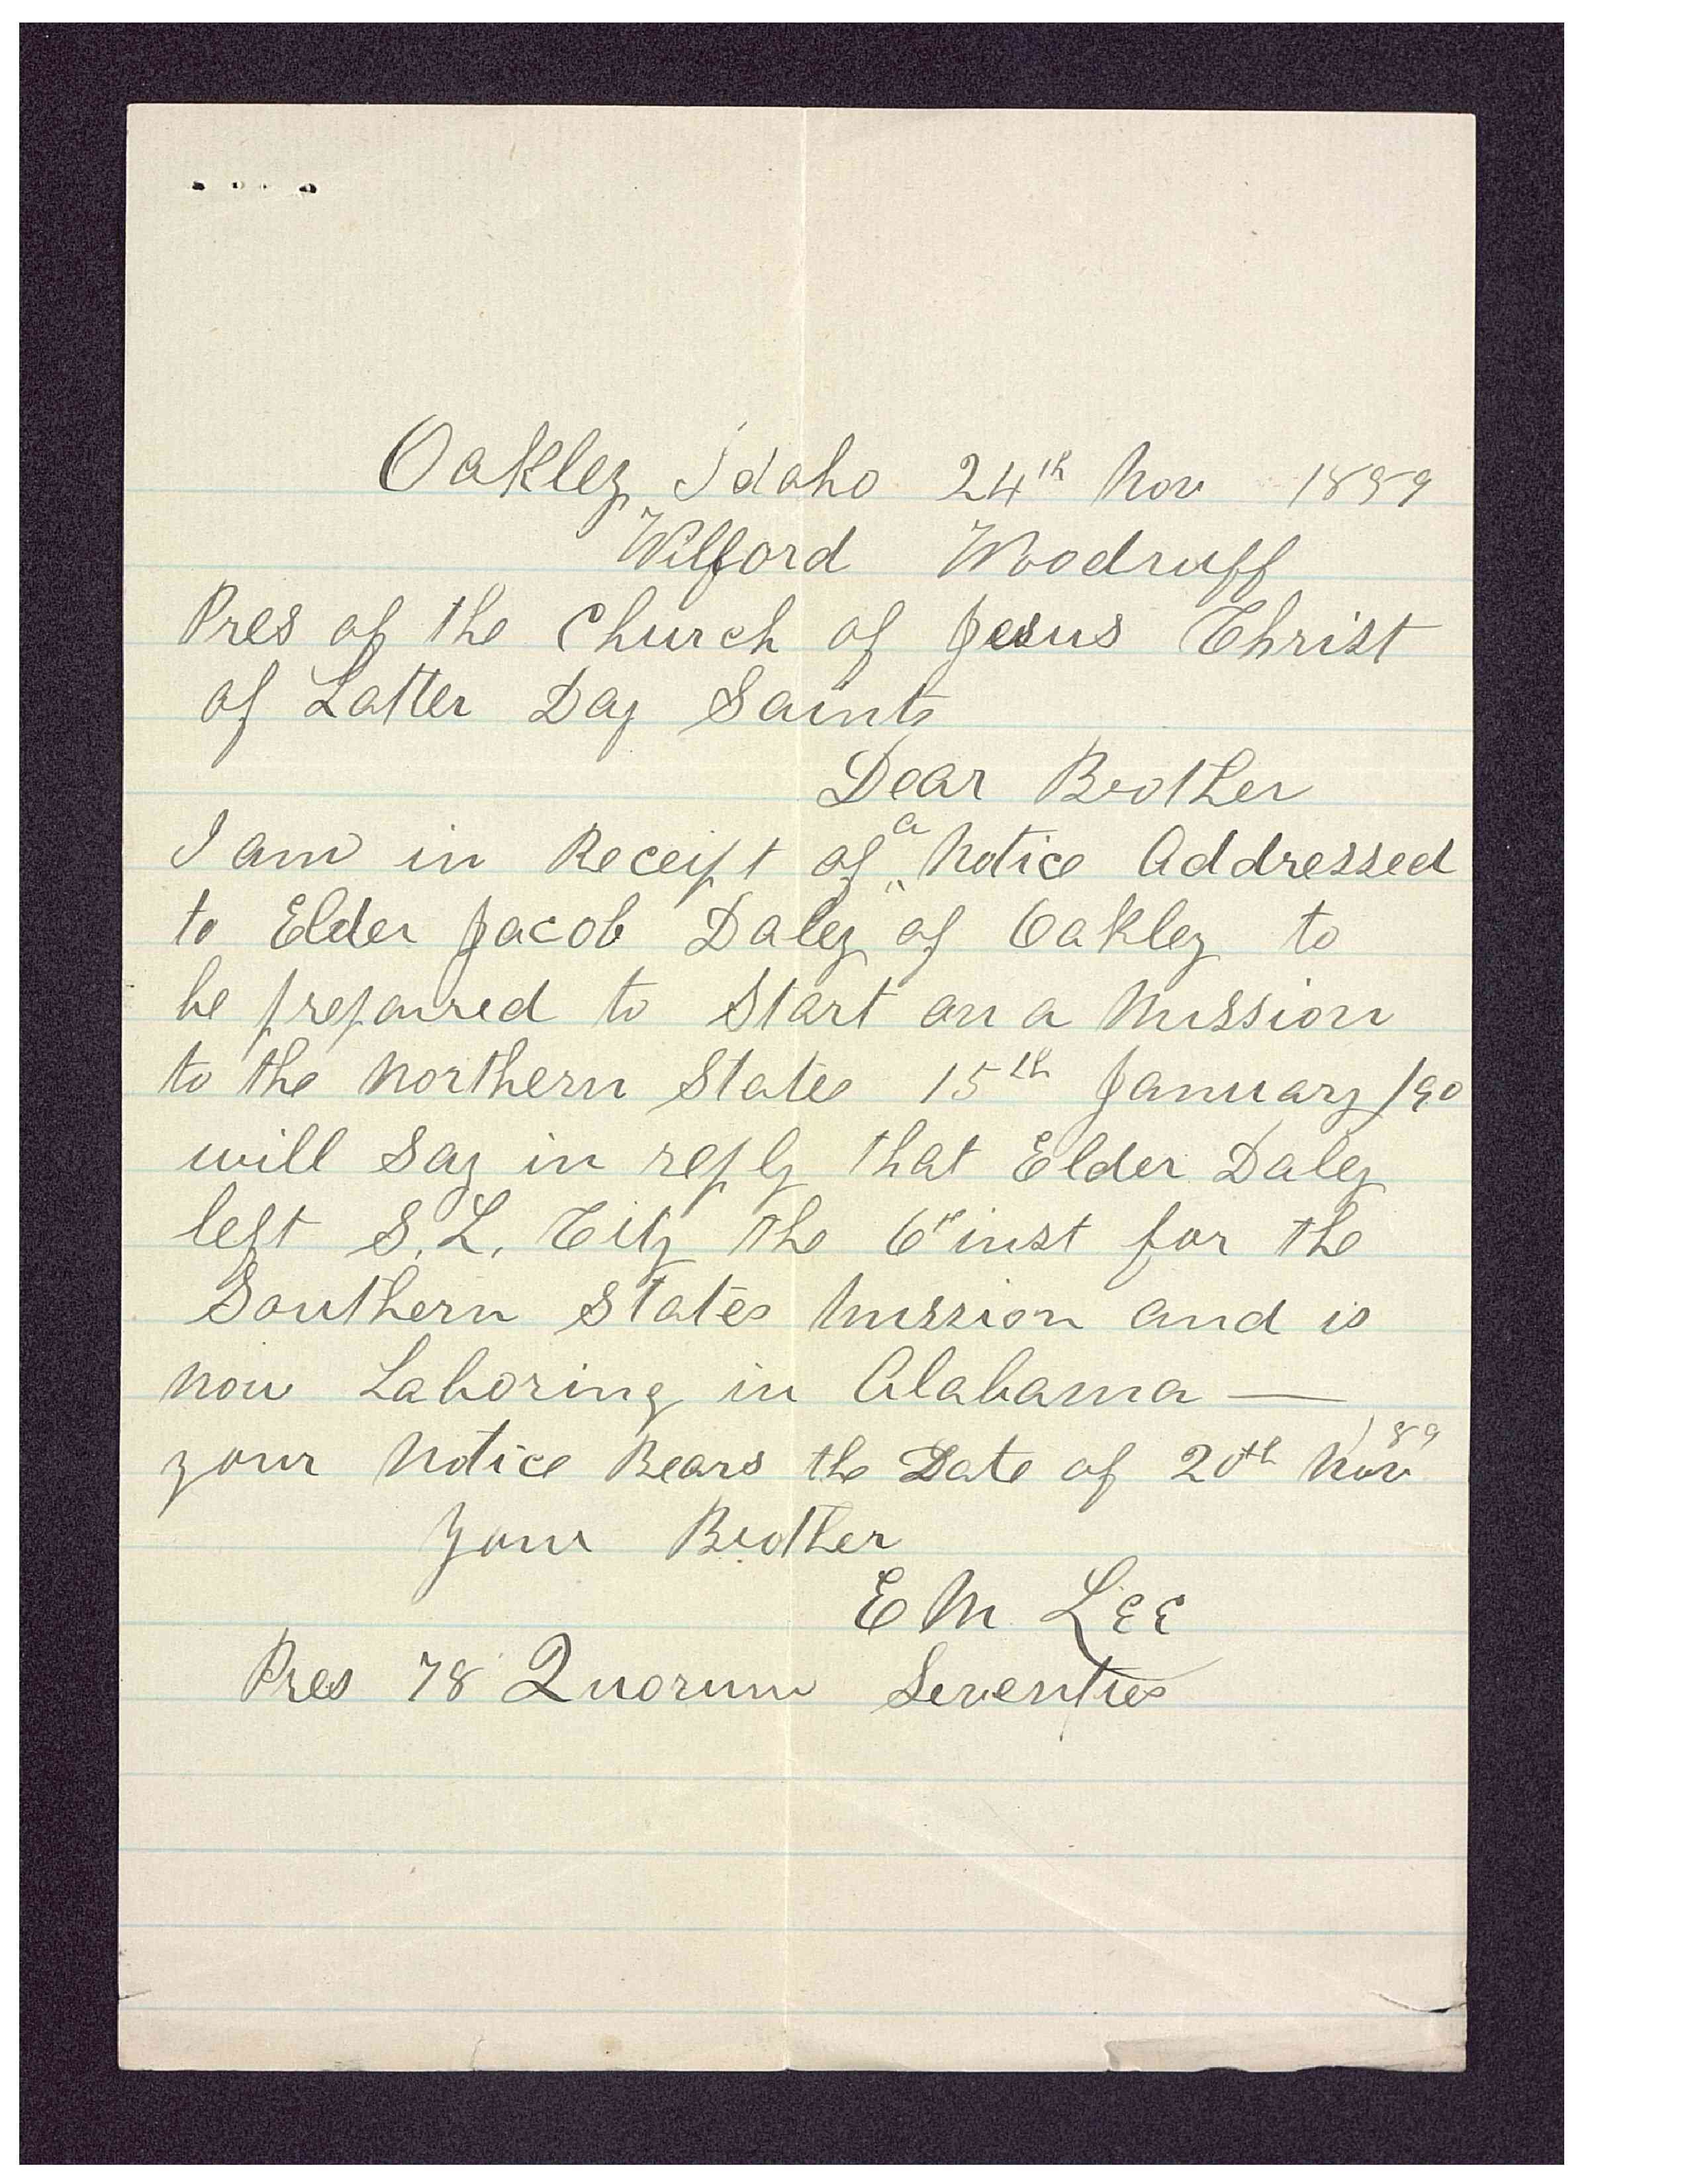 Oakley Idaho 24th Nov 1889
Wilford Woodruff
Pres of the Church of Jesus Christ
of Latter Day Saints
Dear Brother
I am in Receipt of a Notice Addressed
to Elder Jacob Daley of Oakley to
be prepaired to Start on a Mission
to the Northern States 15th January /90
will Say in reply that Elder Daley
left S. L. City the 6th inst for the
Southern States Mission and is
now Laboring in Alabama —
your Notice Bears the Date of 20th Nov /89
Your Brother
E M Lee
Pres 78 Quorum Seventies